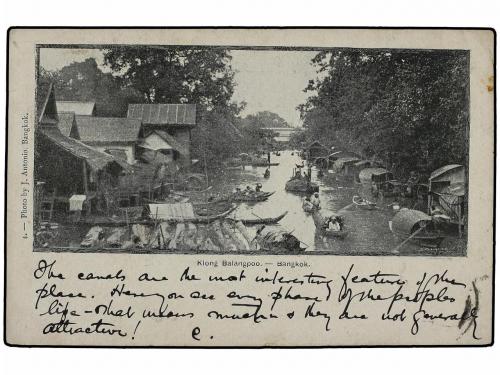 1. — Photo by J. Antonio. Bangkok.
Klong Balangpoo. — Bangkok.
The canals are the most interesting feature of the
place. Here you see every phase of the peoples
life - that means much & they are not general
attractive! C.